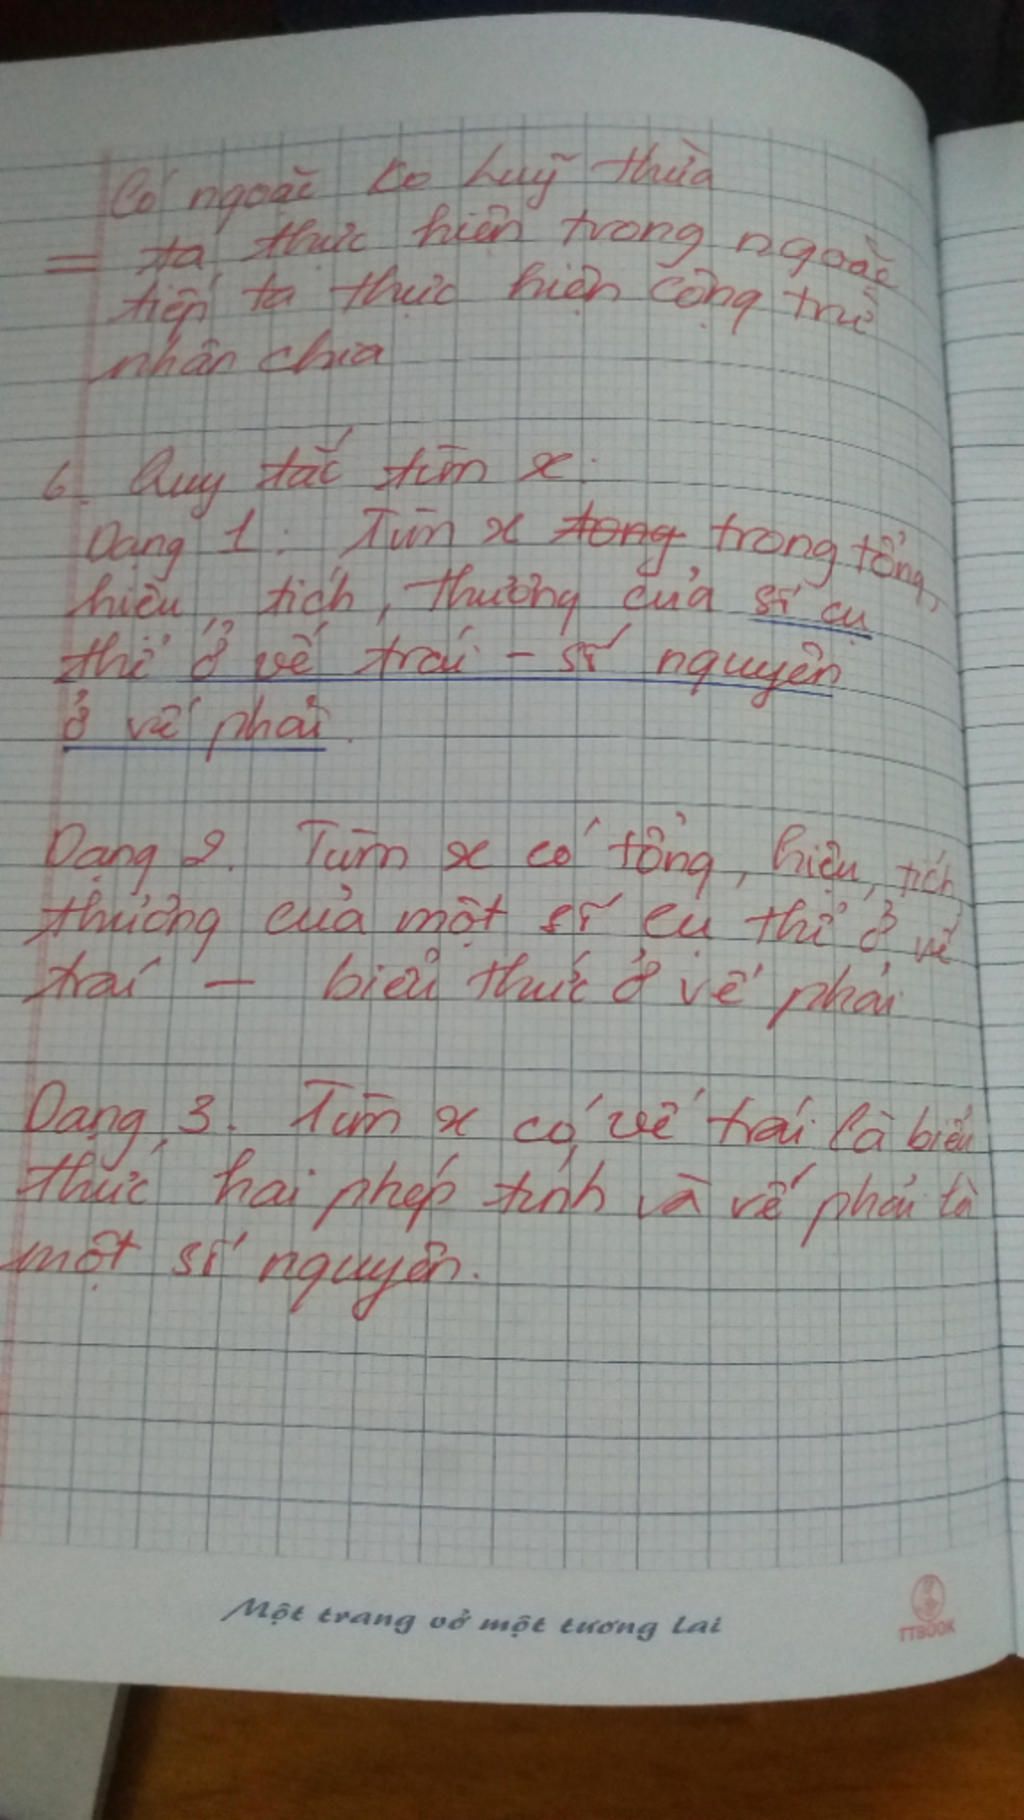 Có ngoặc ko luỹ thừa
= ta thực hiện trong ngoặc
tiếp ta thực hiện cộng trừ
nhân chia
6. Quy tắc tìm x:
Dạng 1: Tìm x tong trong tổng,
hiệu, tích, thương của số cụ
thể ở vế trái - số nguyên
ở vế phải.
Dạng 2. Tìm x có tổng, hiệu, tích
thương của một số cụ thể ở vế
trái - biểu thức ở vế phải
Dạng 3. Tìm x có vế trái là biểu
thức hai phép tính và vế phải là
một số nguyên.
Một trang vở một tương lai
TTBOOK